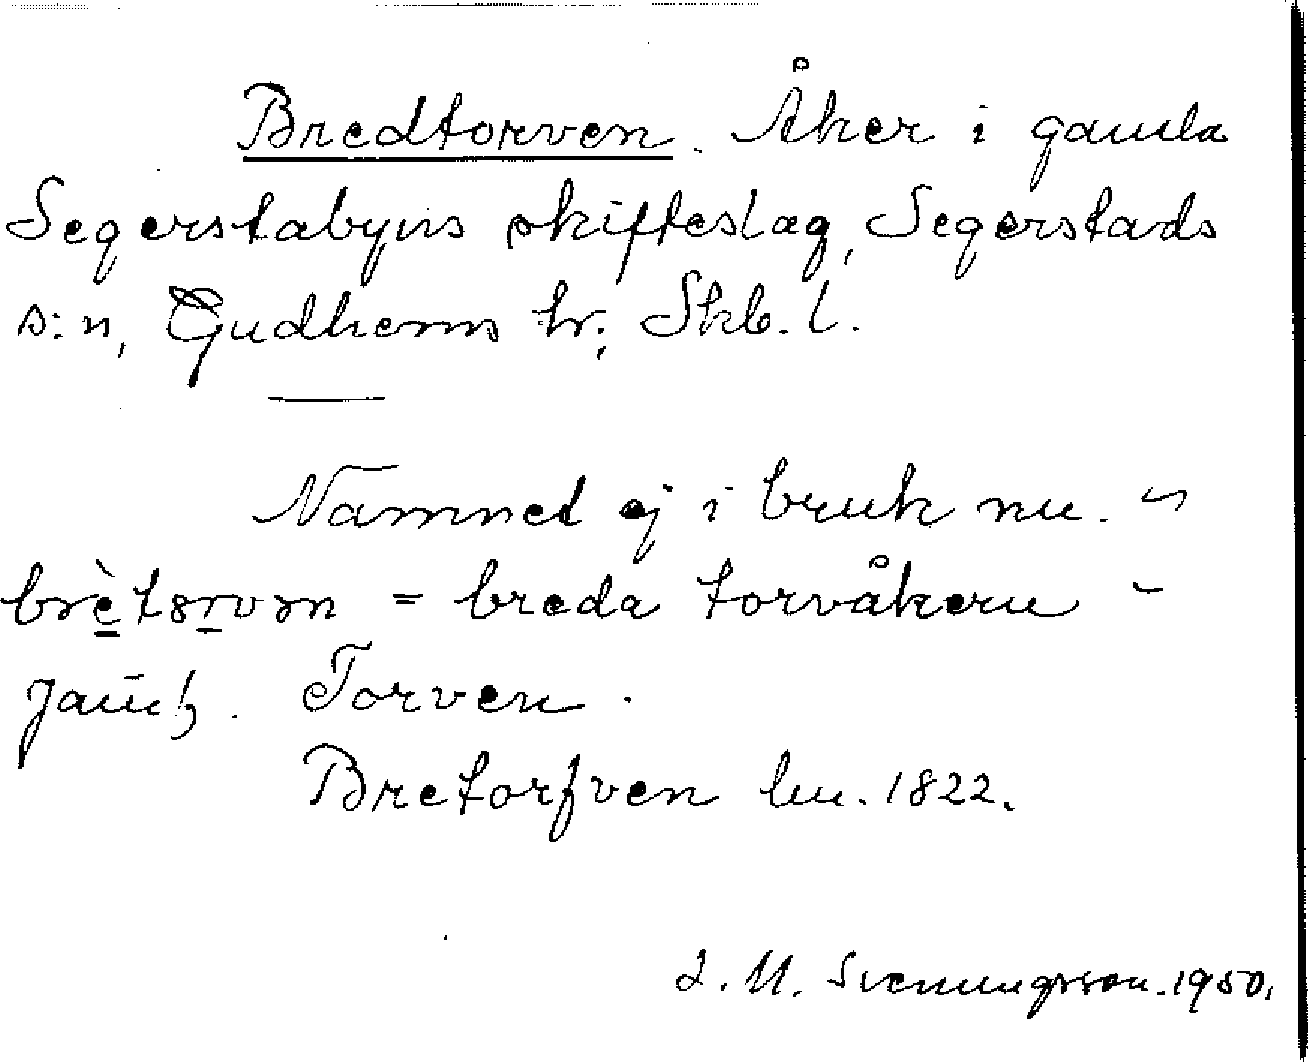 Bredtorven. Åker i gamla
Segerstabyns skifteslag, Segerstads
s:n, Gudhems hr; Skb. l.
Namnet ej i bruk nu. ~
= breda torvåkern -
jämf. Torven.
Bretorfven lm. 1822.
Svenungsson. 1950.